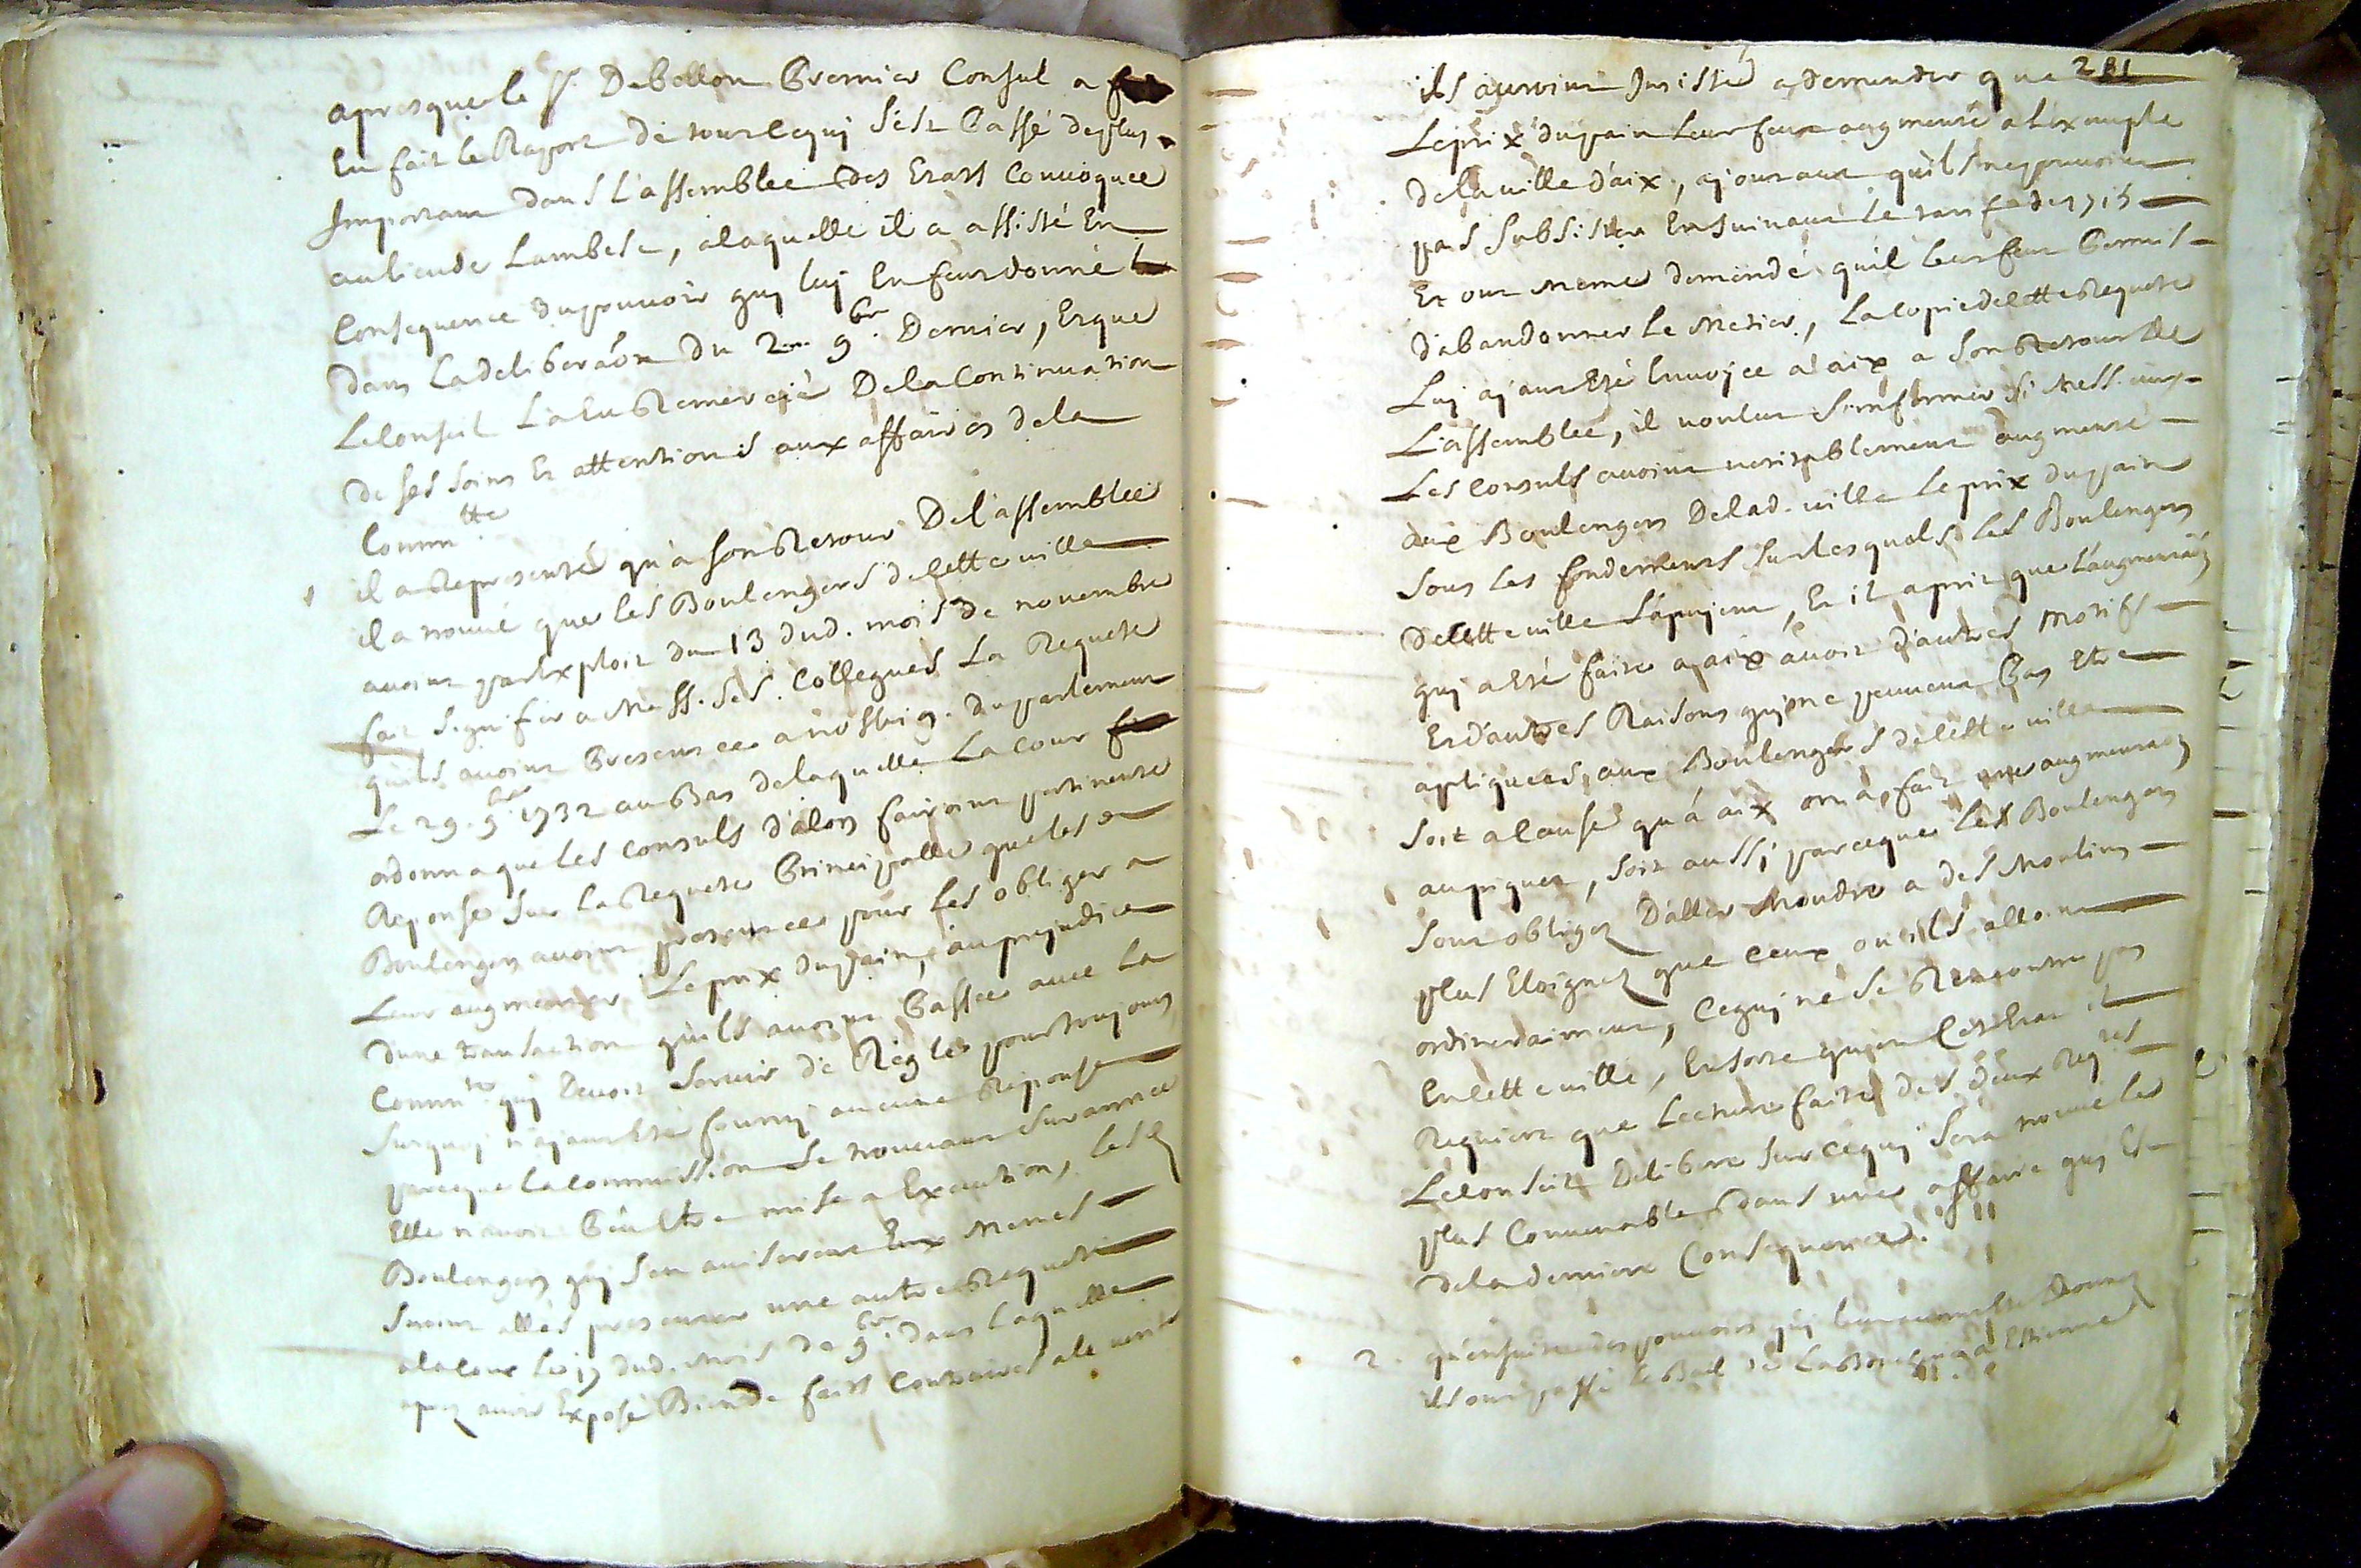 apresque le Sr. Debellon Premier Consul a
Eu fait le Raport de tout ce qui s'est Passé de plus
Important dans L'assemblee des Etats Convoquee
au lieu de Lambesc, a laquelle il a assisté En
Consequence du pouvoir qui luy En feut donné
dans La deliberaôn du 2 9bre. Dernier, Et que
Le Conseil L'a Eu Remercié De la Continuation
de ses soins Et attentions aux affaires de la
Commtte.
1 il a Representé qu'a son Retour De l'assemblée
il a trouvé que les Boulengers de cette ville
avoint par Exploit du 13 dud. mois de novembre
fait signifier a Mess. ses Collegues La Requete
quils avoint Presentee a nosseig. du parlement
Le 29. 9bre 1732 au Bas de laquelle La Cour
ordonna que les consuls d'alors fairoint pertinente
Reponse sur la Requete Principalle que les
Boulengers avoint presentee pour les obliger a
Leur augmenter Le prix du pain, au prejudice
d'une transaction quils avoint Passee avec la
Commté. qui Devoit Servir de Regle pour toujours
surquoy n'ayant Eté fourny aucune Reponse
parceque la commission se trouvant surannee
Elle n'avoit Peu Etre mise a Execution, les
Boulengers qui s'en aviserent Eux Memes
seroint allés presenter une autre Requete
a la Cour le 17 dud. Mois de 9bre. dans laquelle
apres avoir Exposé Bien de faits Contraires a la verité
281
ils auroint Insisté a demender que
Le prix du pain leur feut augmenté a L'exemple
de la ville d'aix, ajoutant quils ne pouvoint
pas subsister En suivant le tarif de 1715
Et ont meme demendé quil leur feut Permis
d'abandonner le Metier, La Copie de cette Requete
Luy ayant Eté Envoyee a aix a son Retour de
L'assemblée, il voulut s'informer si Messieurs
Les Consuls avoint veritablement augmenté
aux Boulengers De lad. ville Le prix du pain
sous les fondemens sur lesquels les Boulengers
de Cette ville s'apuyent, Et il aprit que L'augmentaôn
qui a Eté faite a aix avoit d'autres Motifs
Et d'autres Raisons qui ne peuvent Pas Etre
apliquees aux Boulengers de cette ville
soit a cause qu'a aix on a fait une augmentaôn
au piquet, soit aussi parceque les Boulengers
sont obliges D'aller Moudre a des Moulins
plus Eloignes que Ceux ou ils alloint
ordinerairement, Ce qui ne se Rencontre pas
En cette ville, En sorte qu'en Cet Etat il
Requiert que Lecture faite des deux Reqtes
Le Conseil Delibere sur ce qui sera trouvé le
plus Convenable dans une affaire qui Est
de la derniere Consequence.
2. qu'ensuite des pouvoirs qui leur ont Eté Donnés
ils ont passé le Bail de La Boucherie a Estienne